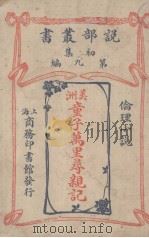 説部叢書
初集
第九編
倫理小説
美洲
童子萬里尋親記
上海
商務印書館發行